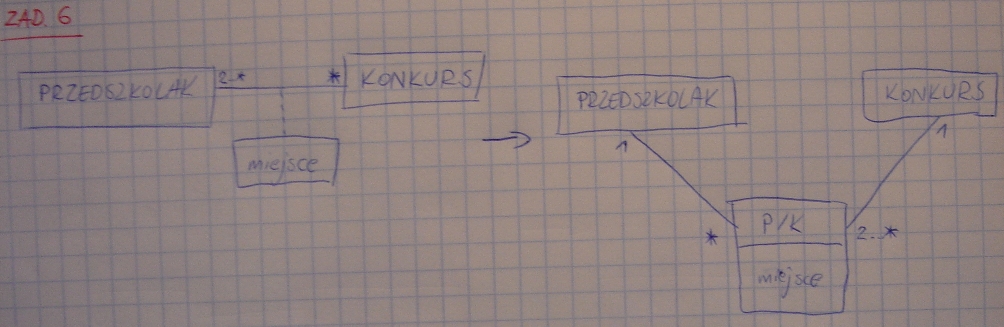 ZAD. 6
PRZEDSZKOLAK 2..* * KONKURS
miejsce
PRZEDSZKOLAK
1
KONKURS
1
P/K
* 2..*
miejsce